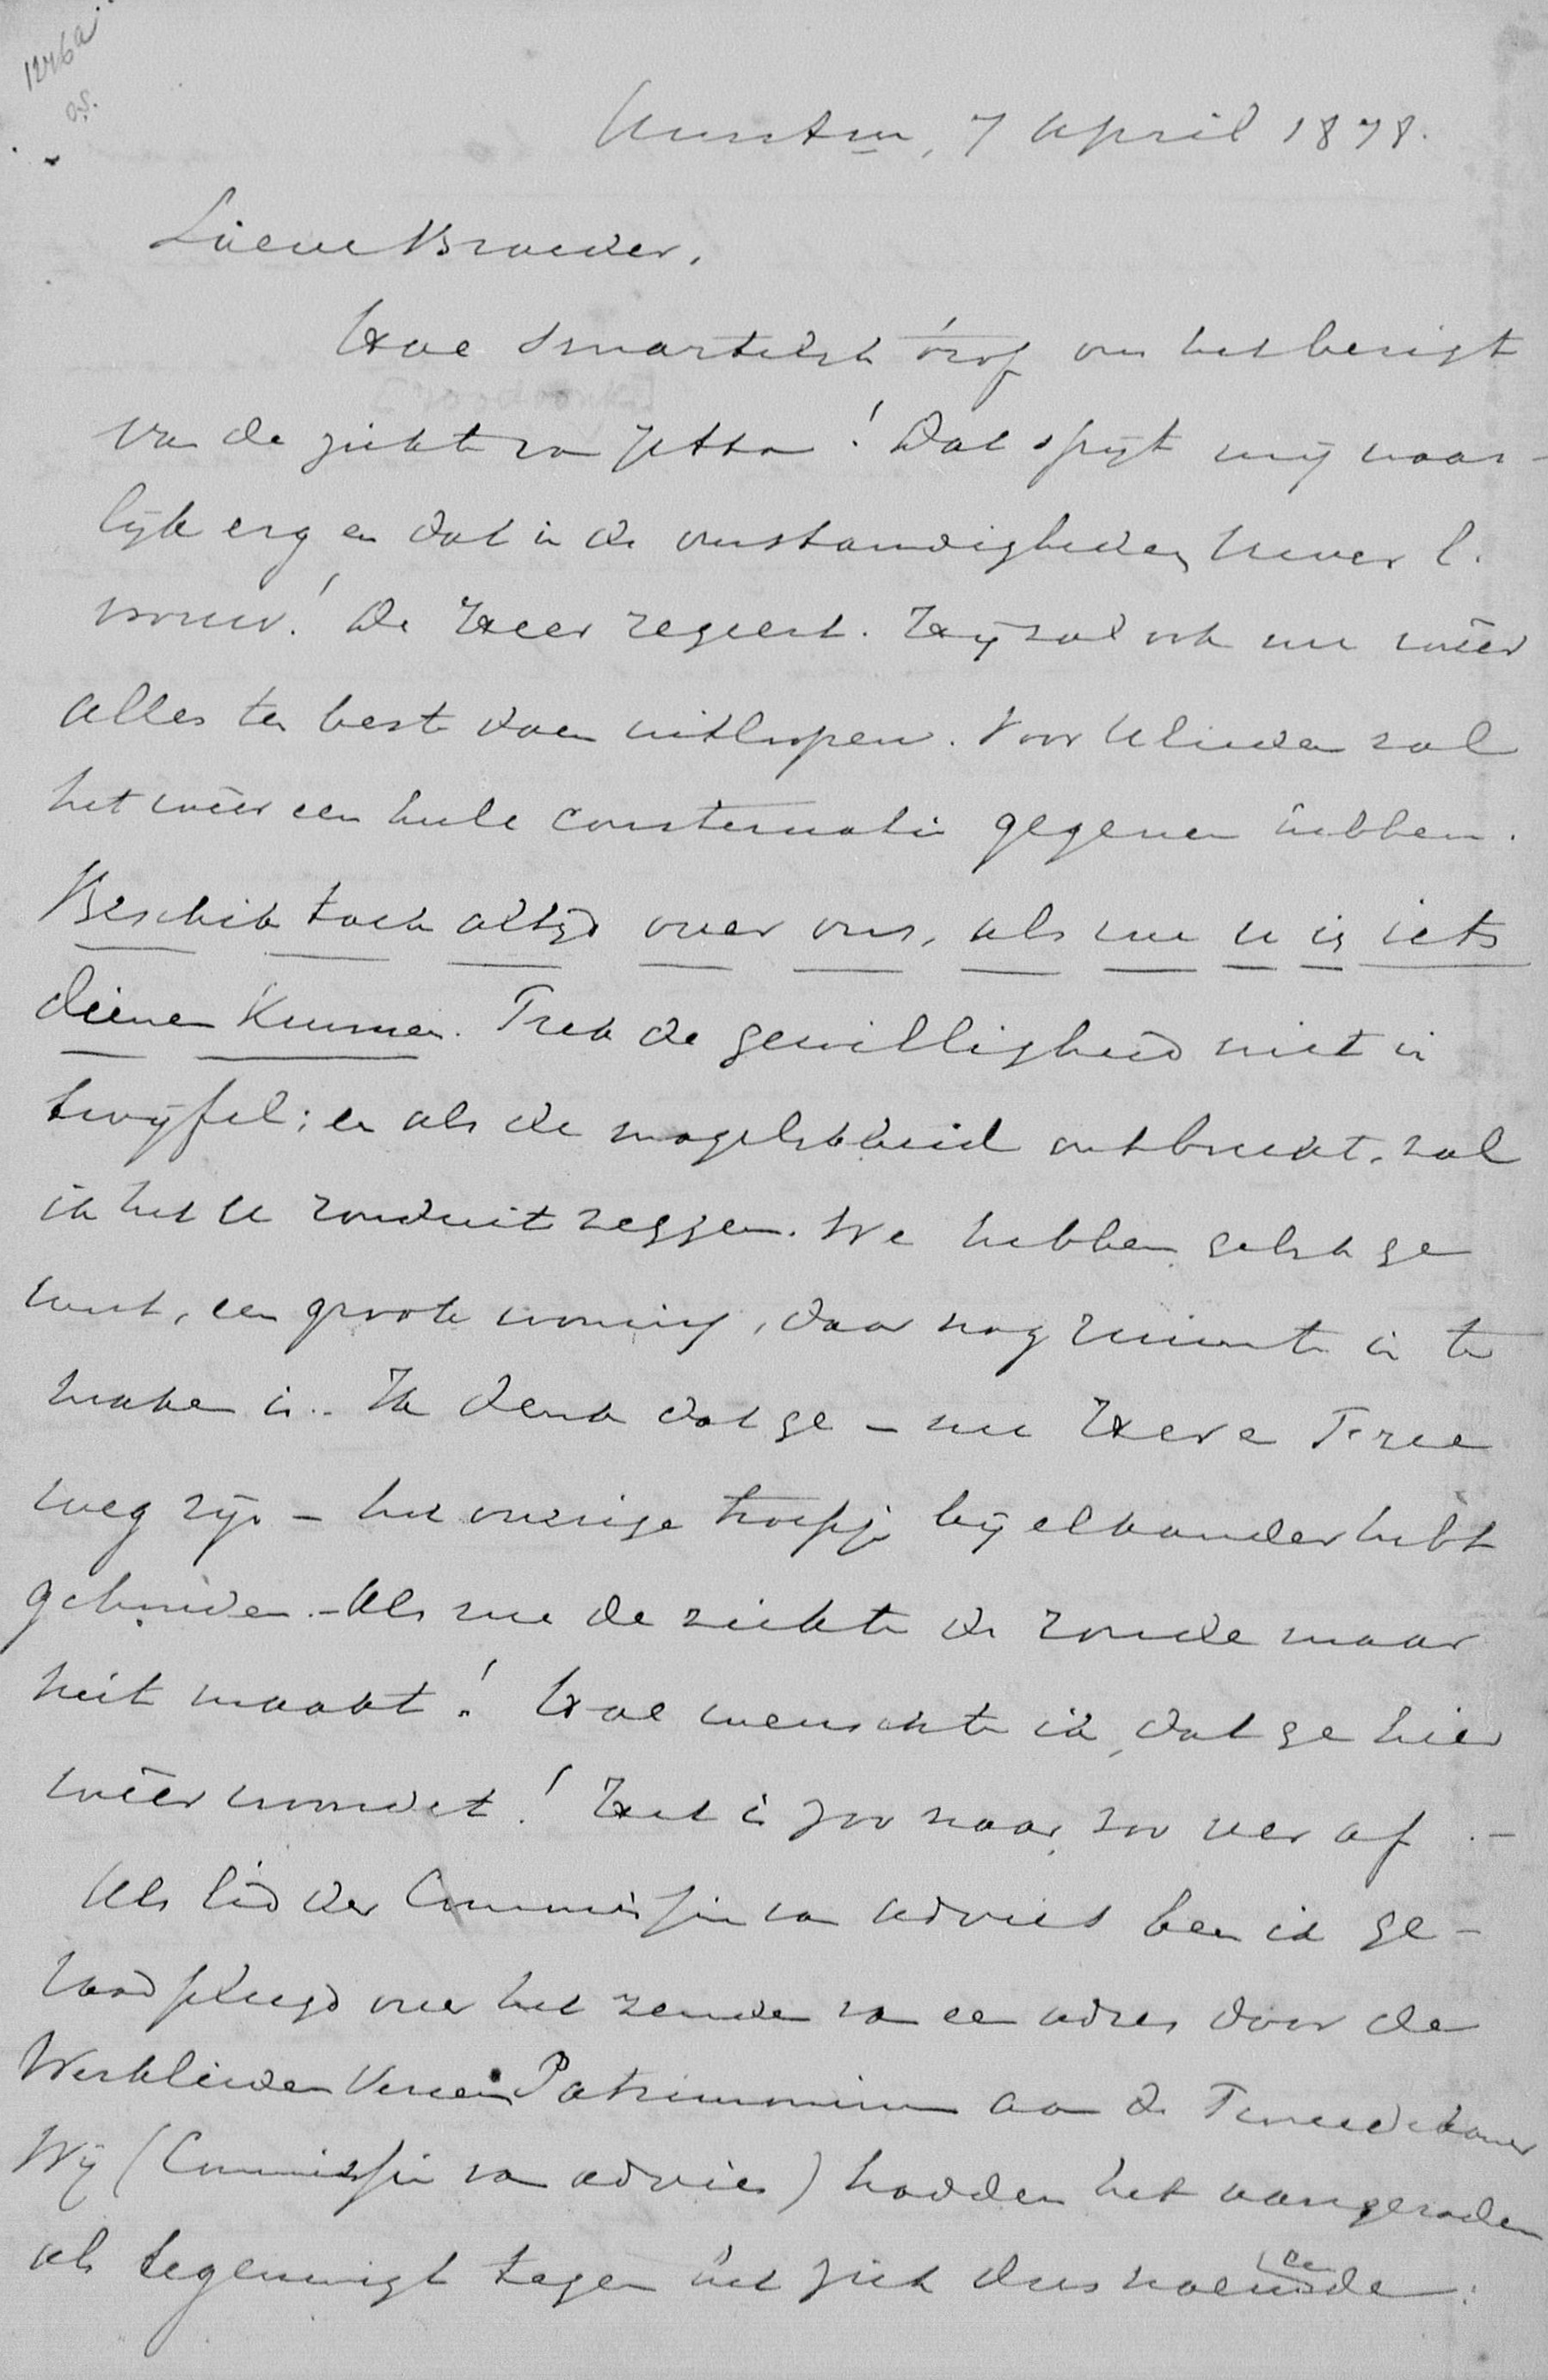 1246a
a.s.
Amstm, 7 April 1878.
Lieve Broeder,
Hoe smartelijk trof ons het berigt
van de ziekte van Jetta! Dat spijt mij waar-
lijk erg en dat in de omstandigheden Uwer l.
vrouw! De Heer regeert. Hij zal ook nu wêer
alles ten beste doen uitloopen. Voor Ulieden zal
het wêer een heele consternatie gegeven hebben.
Beschik toch altijd over ons, als we u in iets
dienen kunnen. Trek de gewilligheid niet in
twijfel; en als de mogelijkheid ontbreekt, zal
ik het U ronduit zeggen. We hebben gelijk ge
weet, een groote woning, daar nog ruimte in te
maken is. Ik denk dat ge – nu H
weg zijn – het overige troepje bij elkander hebt
gehouden. – Als nu de ziekte de ronde maar
niet maakt! Hoe wenschte ik, dat ge hier
wêer woondet! Het is zoo naar, zoo ver af. –
Als lid der Commissie van advies ben ik ge-
raadpleegd over het zenden van een adres door de
Werklieden Vereen Patrimonium aan de Tweede kamer
Wij (Commissie van advies) hadden het aangeraden
als tegenwigt tegen het zich dus noemende: